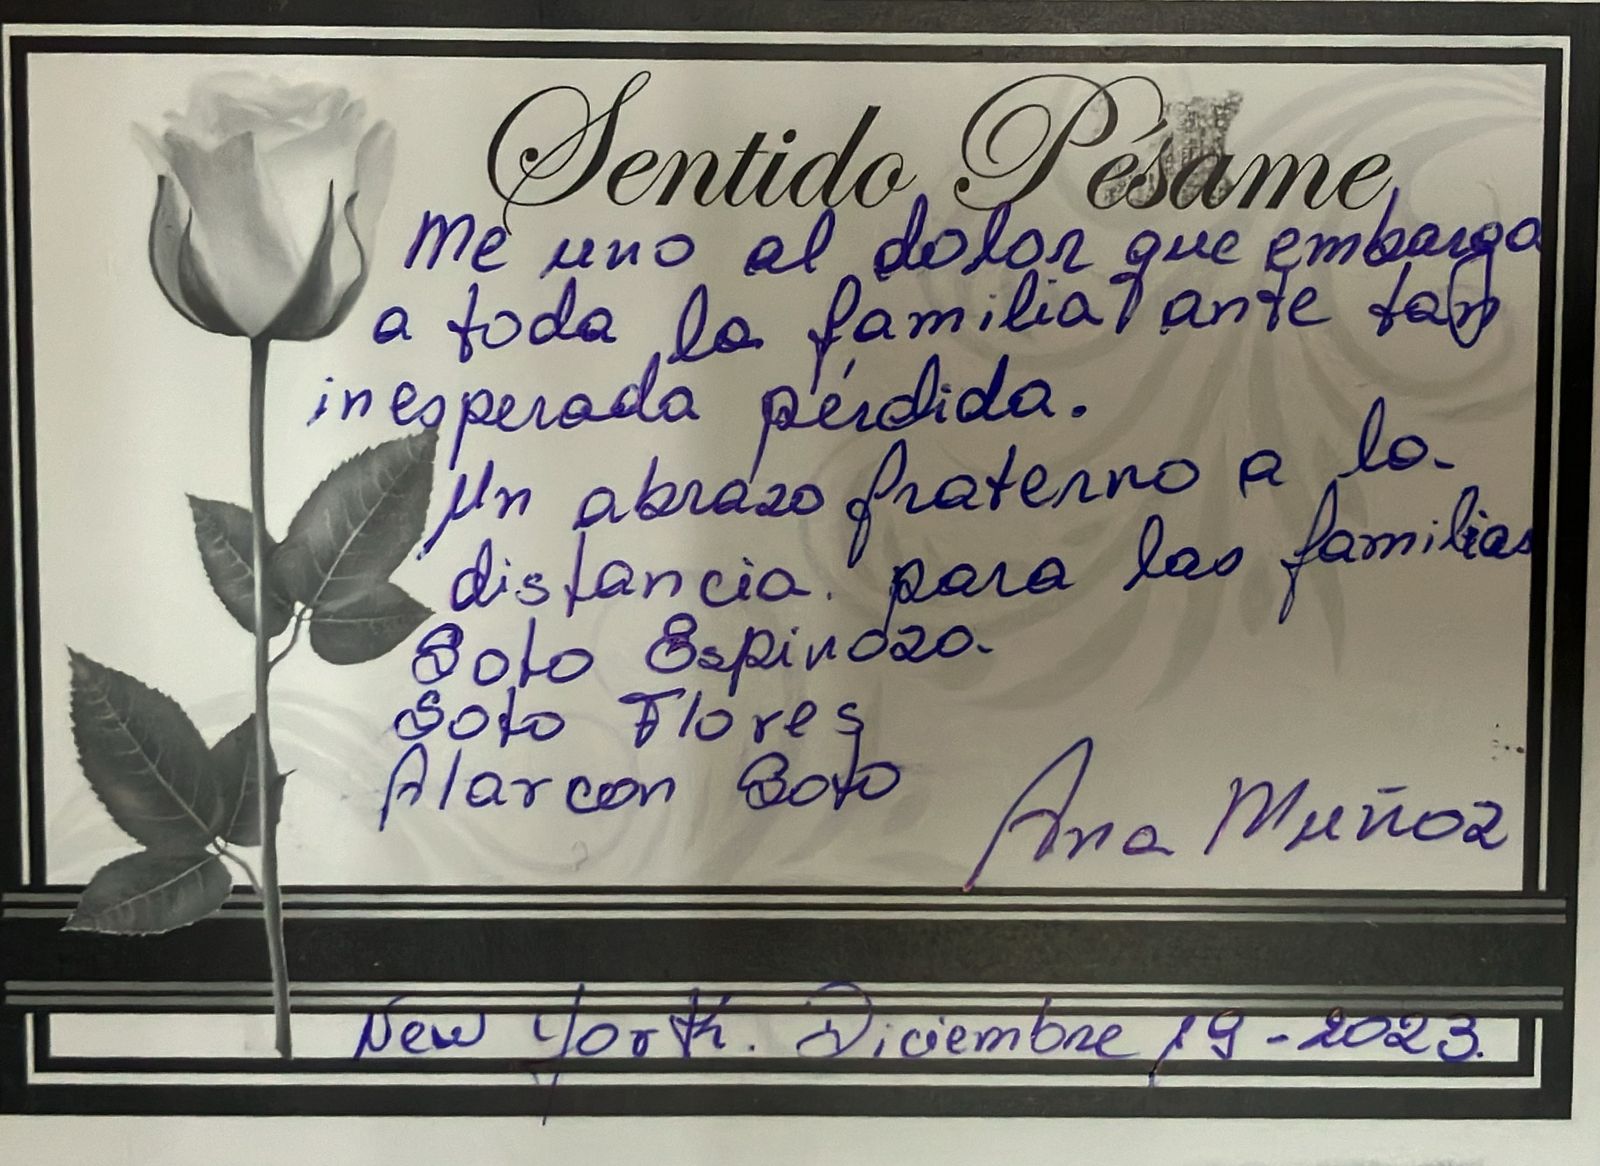 Sentido Pésame
Me uno al dolor que embarga
a toda la familia ante tan
inesperada pérdida.
Un abrazo fraterno a la
distancia. para las familias
Soto Espinoza.
Soto Flores
Alarcon Soto
Ana Muñoz
New York. Diciembre 19-2023.